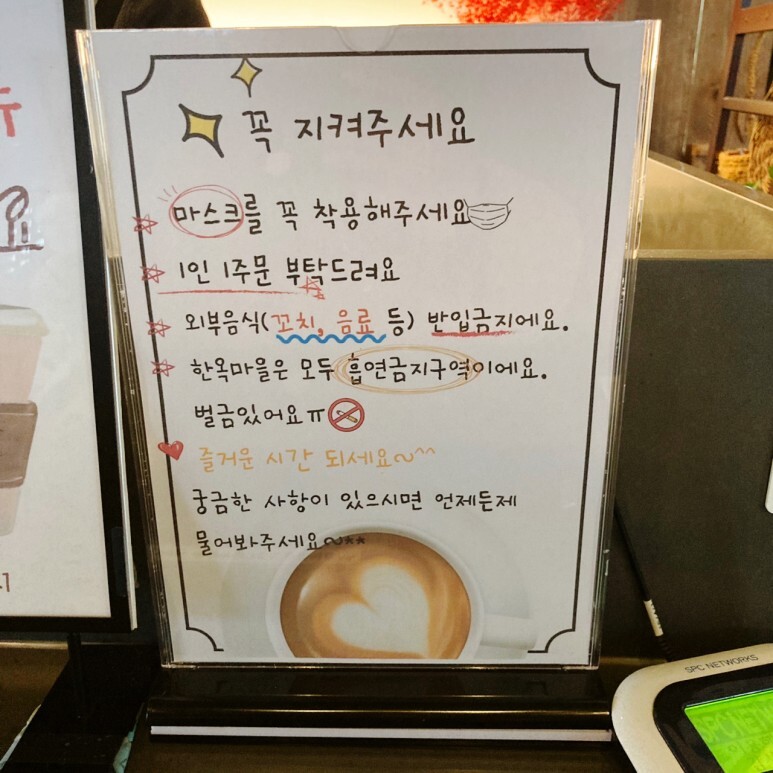 꼭 지켜주세요
마스크를 꼭 착용해주세요
1인 1주문 부탁드려요
외부음식(꼬치, 음료 등) 반입금지에요.
한옥마을은 모두 흡연금지구역이에요.
벌금있어요ㅠ
즐거운 시간 되세요~^^
궁금한 사항이 있으시면 언제든제
물어봐주세요~**
SPC NETWORKS